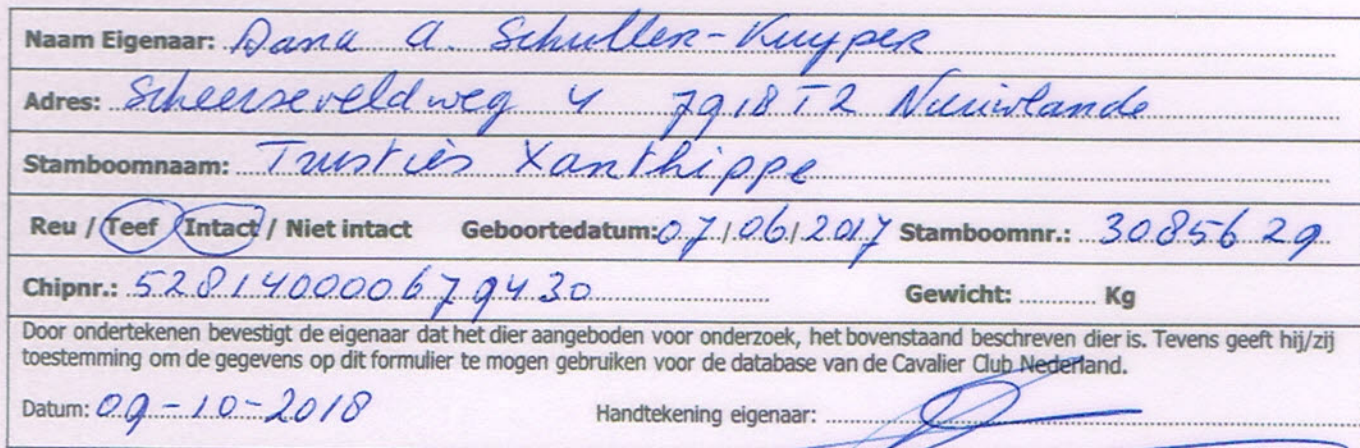 Naam Eigenaar: Dana A. Schuller-Kuyper
Adres: Scheerseveldweg 4 7918 TZ Nieuwlande
Stamboomnaam: Trusties Xanthippe
Reu / Teef Intact / Niet intact Geboortedatum: 07/06/2017 Stamboomnr.: 3085629
Chipnr.: 528140000679430 Gewicht: ............ Kg
Door ondertekenen bevestigt de eigenaar dat het dier aangeboden voor onderzoek, het bovenstaand beschreven dier is. Tevens geeft hij/zij
toestemming om de gegevens op dit formulier te mogen gebruiken voor de database van de Cavalier Club Nederland.
Datum: 09-10-2018 Handtekening eigenaar: